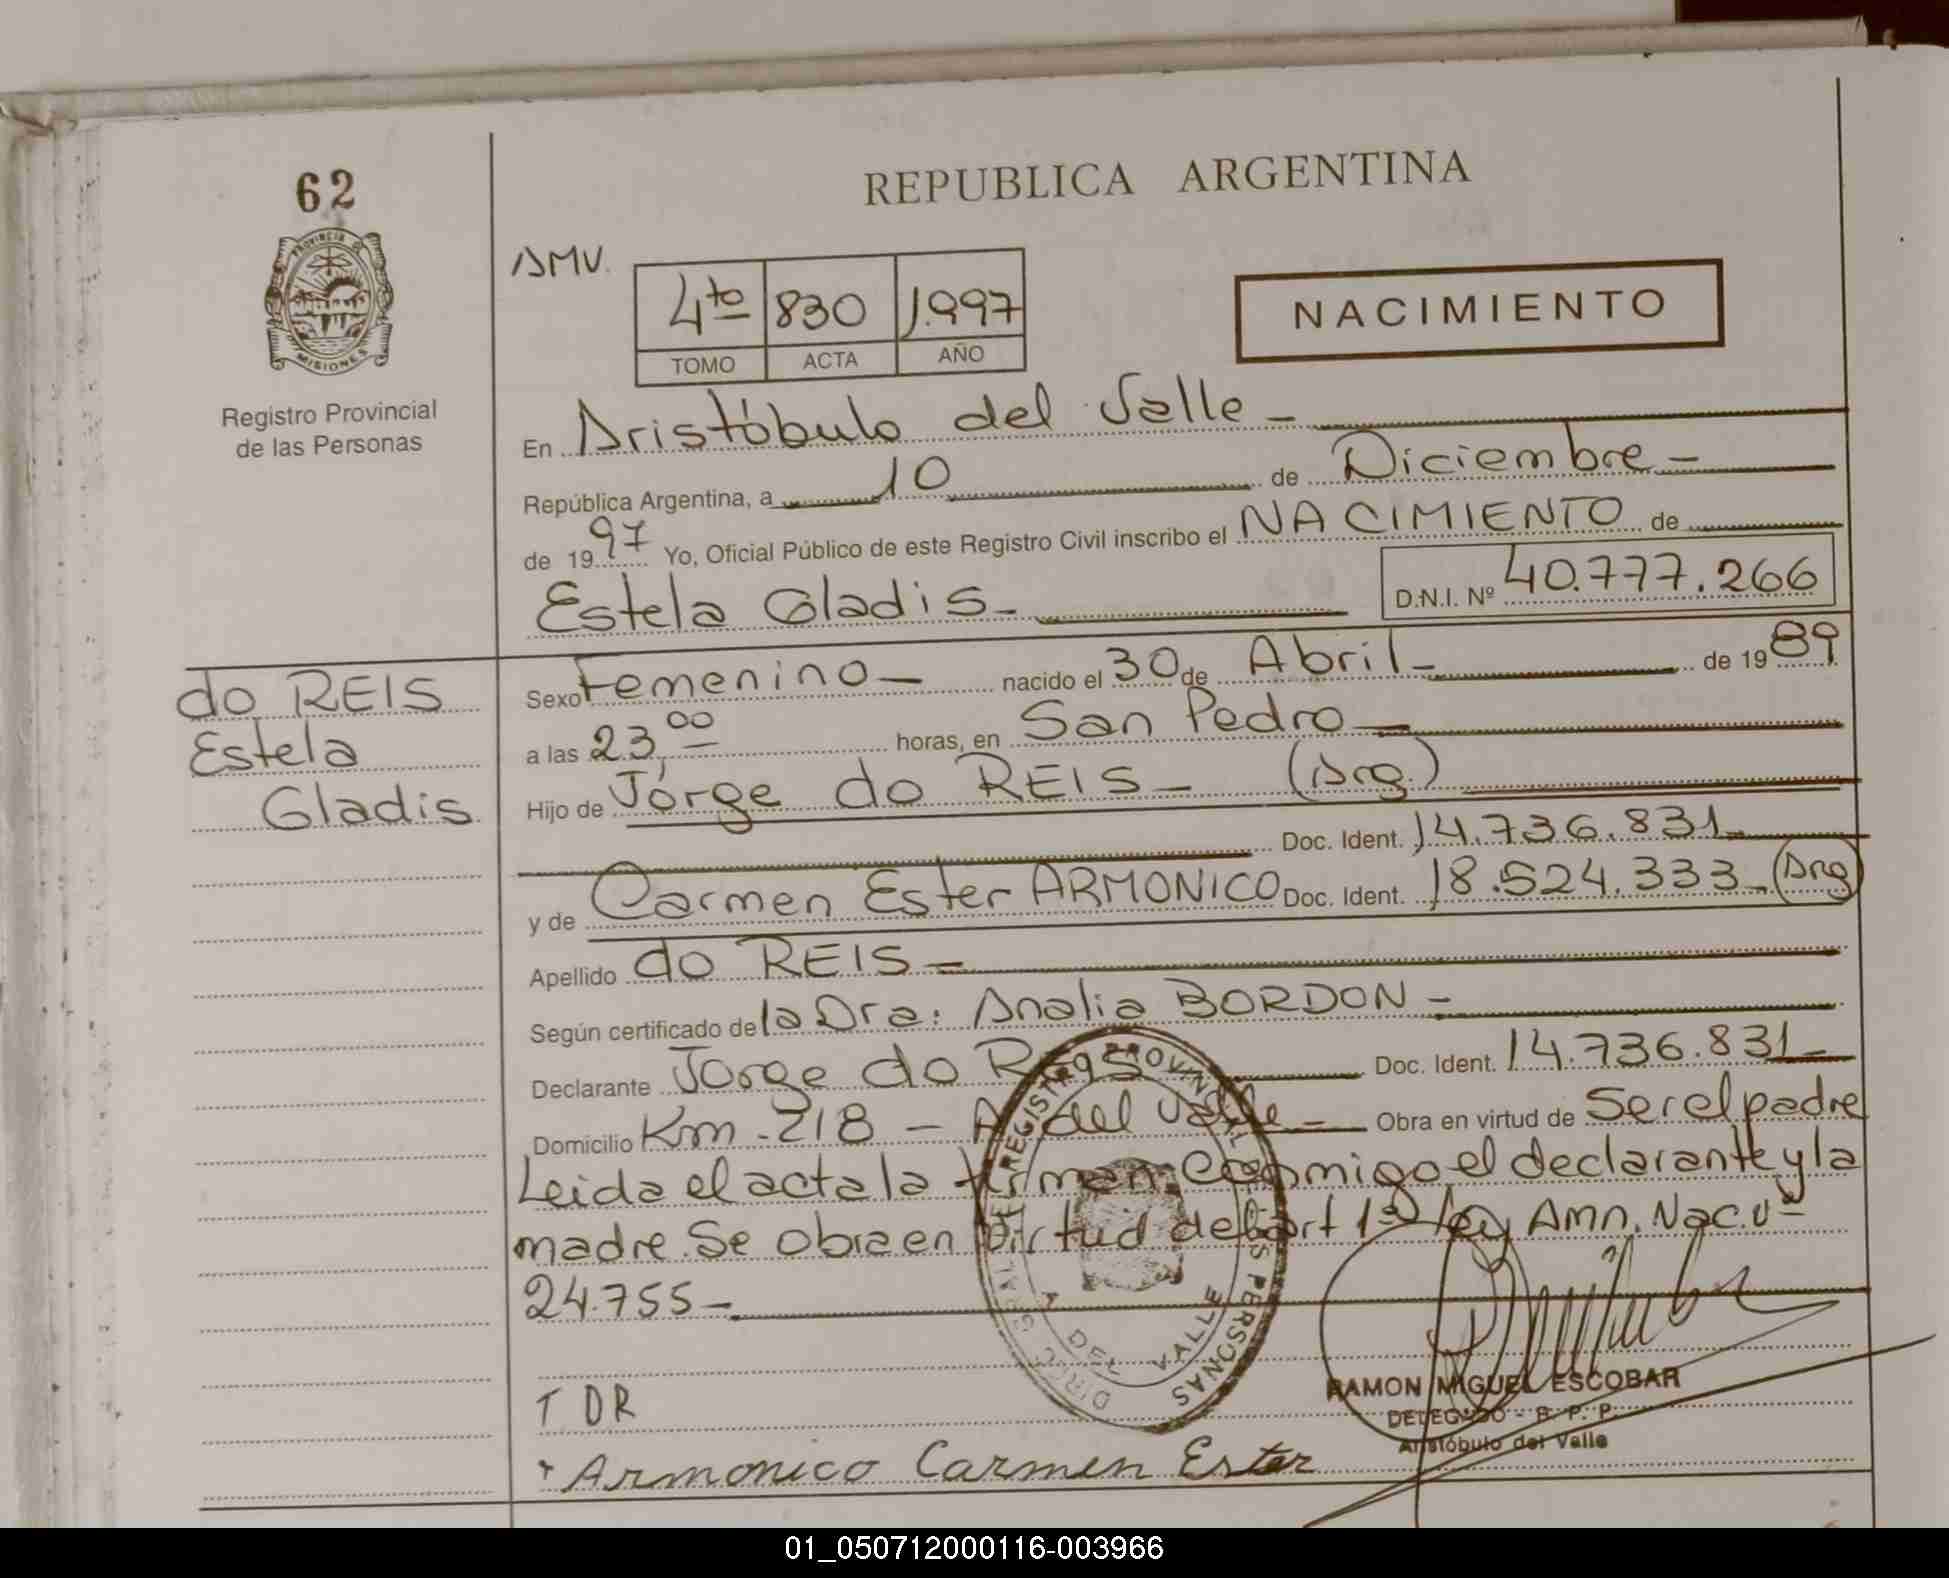 62
PROVINCIA DE
MISIONES
Registro Provincial
de las Personas
REPUBLICA ARGENTINA
AMV.
4to 830 1.997
TOMO ACTA AÑO
NACIMIENTO
En Aristóbulo del Valle -
República Argentina, a 10 de Diciembre -
de 19 97 Yo, Oficial Público de este Registro Civil inscribo el NACIMIENTO de
Estela Gladis - D.N.I. Nº 40.777.266
do REIS
Estela
Gladis
Sexo Femenino - nacido el 30 de Abril - de 19 89
a las 23,00 horas, en San Pedro -
Hijo de Jorge do REIS - (Arg.)
Doc. Ident. 14.736.831 -
y de Carmen Ester ARMONICO Doc. Ident. 18.524.333 - (Arg)
Apellido do REIS -
Según certificado de la Dra: Analia BORDON -
Declarante Jorge do Reis Doc. Ident. 14.736.831 -
Domicilio Km - 218 - A. del Valle - Obra en virtud de Ser el padre
Leida el acta la firman conmigo el declarante y la
madre. Se obra en virtud del art 1º ley Amn. Nac. Nº
24.755 -
DIREC. GRAL. DE REGISTRO PROVINCIAL DE LAS PERSONAS
A. DEL VALLE
RAMON MIGUEL ESCOBAR
DELEGADO - R. P. P.
Aristóbulo del Valle
T DR
+ Armonico Carmen Ester
01_050712000116-003966